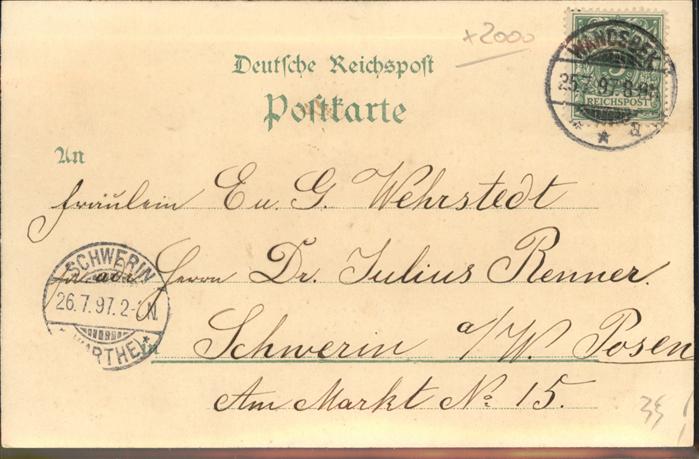 +2000
WANDSBEK
25.7.97.8-9N.
REICHSPOST
a
Deutsche Reichspost
Postkarte
An
Fräulein E u. G. Wehrstedt
Herrn Dr. Julius Renner.
SCHWERIN
26.7.97.2-1N.
(WARTHE)
Schwerin a/W. Posen
Am Markt No 15.